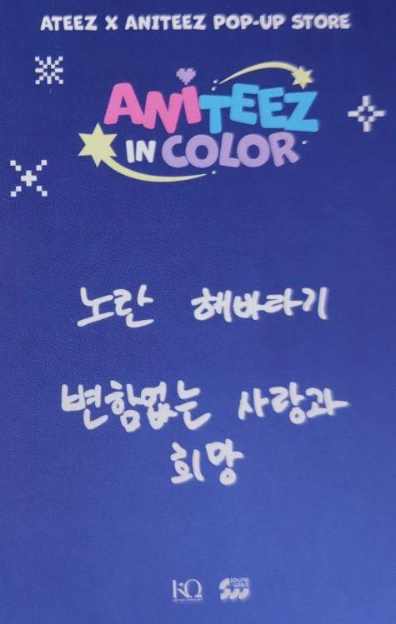 ATEEZ X ANITEEZ POP-UP STORE
ANITEEZ
IN COLOR
노란 해바라기
변함없는 사랑과
희망
KQ